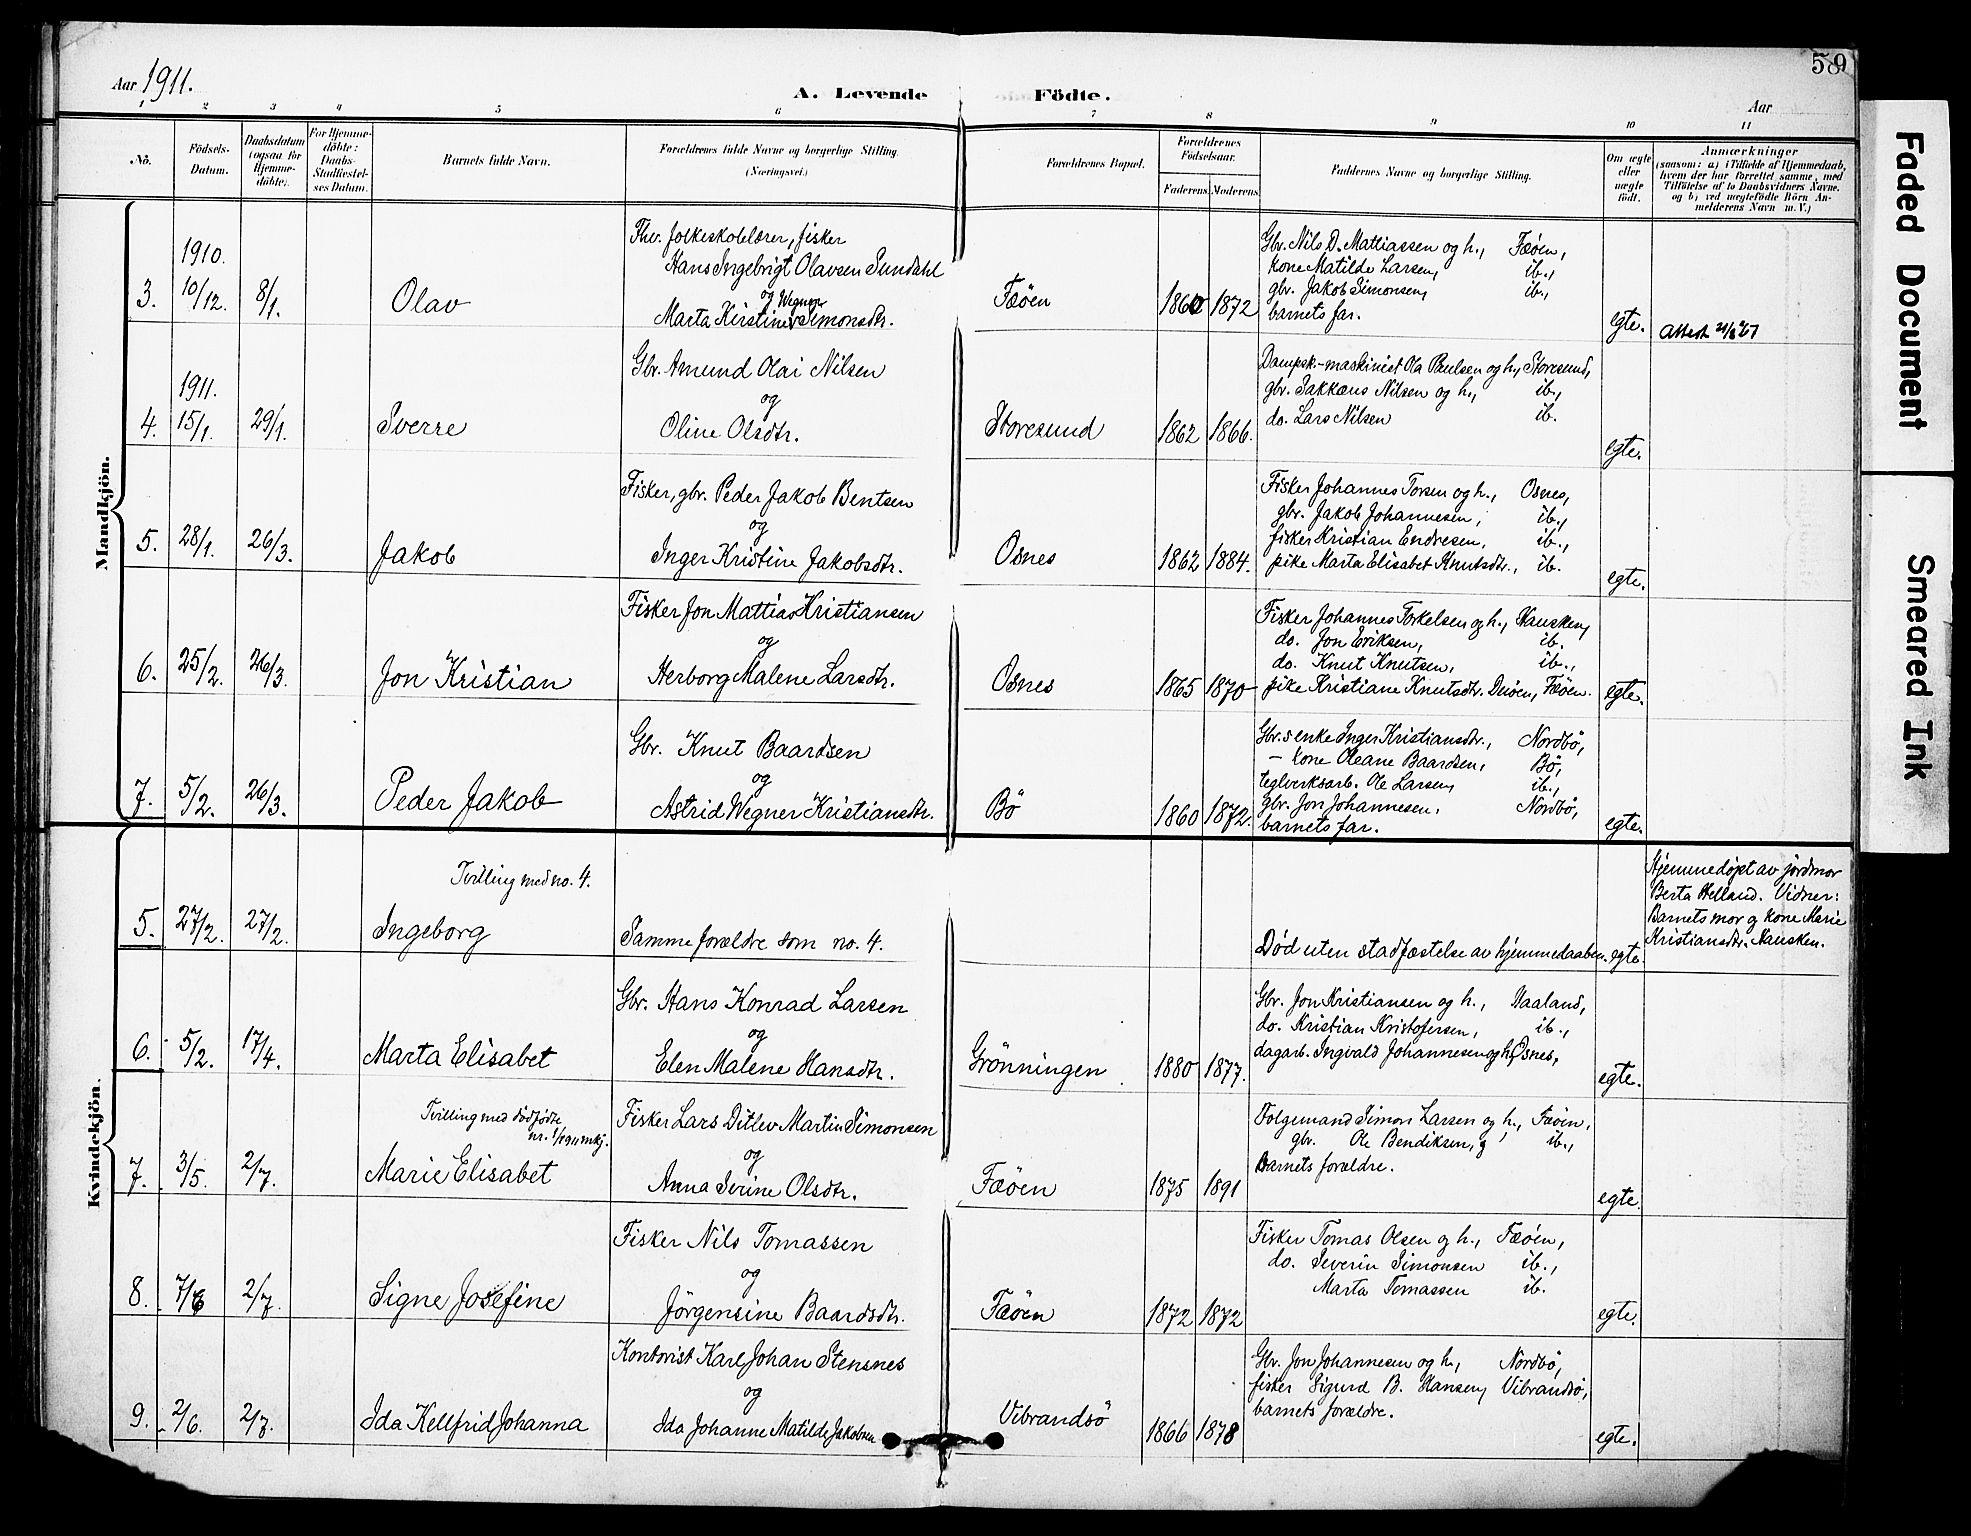 Aar 1911.
A. Levende Födte.
Aar
59
1 2 3 4 5 6 7 8 9 10 11
No.
Födsels-Datum.
Daabsdatum (ogsaa for Hjemme-döbte).
For Hjemme-döbte: Daabs-Stadfæstel-ses Datum.
Barnets fulde Navn.
Forældrenes fulde Navne og borgerlige Stilling. (Næringsvei.)
Forældrenes Bopæl.
Forældrenes Födselsaar.
Faderens Moderens
Faddernes Navne og borgerlige Stilling.
Om ægte eller uægte födt.
Anmærkninger
(saasom: a) i Tilfælde af Hjemmedaab, hvem der har forrettet samme, med Tilföielse af to Daabsvidners Navne. og b) ved uægtefödte Börn An-melderens Navn m. V.)
Mandkjön.
3. 1910. 10/12. 8/1. Olav
Fhv. folkeskolelærer, fisker
Hans Ingebrigt Olavsen Sundahl
og
Marta Kirstine Wegner Simonsdtr.
Fæöen 1860 1872
Gbr. Nils D. Mattiassen og h., Fæöen,
kone Matilde Larsen, ib.,
gbr. Jakob Simonsen, ib.,
barnets far.
egte.
Attest
4. 1911. 15/1. 29/1. Sverre
Gbr. Amund Olai Nilsen
og
Oline Olsdtr.
Storesund 1862 1866.
Dampsk.-maskinist Ola Paulsen og h., Storesund,
gbr. Sakkæus Nilsen og h., ib.,
do. Lars Nilsen ib.
egte.
5. 28/1. 26/3. Jakob
Fisker, gbr. Peder Jakob Bentsen
og
Inger Kristine Jakobsdtr.
Osnes 1862 1884.
Fisker Johannes Torsen og h., Osnes,
gbr. Jakob Johannesen, ib.,
fisker Kristian Endresen, ib.,
pike Marta Elisabet Knutsdtr., ib.
egte.
6. 25/2. 26/3. Jon Kristian
Fisker Jon Mattias Kristiansen
og
Herborg Malene Larsdtr.
Osnes 1865 1870
Fisker Johannes Torkelsen og h., Hausken,
do. Jon Eriksen, ib.
do. Knut Knutsen, ib.,
pike Kristiane Knutsdtr. Fæöen.
egte.
7. 5/2. 26/3. Peder Jakob
Gbr. Knut Baardsen
og
Astrid Wegner Kristiansdtr.
Bö 1860 1872.
Gbr.s enke Inger Kristiansdtr., Nordbö,
– kone Oleane Baardsen, Bö,
teglverksarb. Ole Larsen, ib.,
gbr. Jon Johannesen, Nordbö,
barnets far.
egte.
Kvindekjön.
5. 27/2. 27/2. Tvilling med no. 4.
Ingeborg
Samme forældre som no. 4.
Död uten stadfæstelse av hjemmedaaben. egte.
Hjemmedöpt av jordmor
Berta Helland. Vidner:
Barnets mor og kone Marie
Kristiansdtr. Hausken.
6. 5/2. 17/4. Marta Elisabet
Gbr. Hans Konrad Larsen
og
Elen Malene Hansdtr.
Grönningen 1880 1877.
Gbr. Jon Kristiansen og h., Haaland,
do. Kristian Kristofersen, ib.,
dagarb. Ingvald Johannesen og h., Osnes,
egte.
7. 3/5. 2/7. Tvilling med dödfödte
nr. 1/1911 mkj.
Marie Elisabet
Fisker Lars Ditlev Martin Simonsen
og
Anna Serine Olsdtr.
Fæöen 1875 1891
Folgemand Simon Larsen og h., Fæöen,
gbr. Ole Bendiksen, ib.,
barnets forældre.
egte.
8. 7/6 2/7. Signe Josefine
Fisker Nils Tomassen
og
Jörgensine Baardsdtr.
Fæöen 1872 1872
Fisker Tomas Olsen og h., Fæöen,
do. Severin Simonsen ib.,
Marta Tomassen ib.
egte.
9. 2/6. 2/7. Ida Kellfrid Johanna
Kontorist Karl Johan Stensnes
og
Ida Johanne Matilde Jakobsen
Vibrandsö 1866 1878
Gbr. Jon Johannesen og h., Nordbö,
fisker Sigurd B. Hansen, Vibrandsö,
barnets forældre.
egte.
Faded Document
Smeared Ink